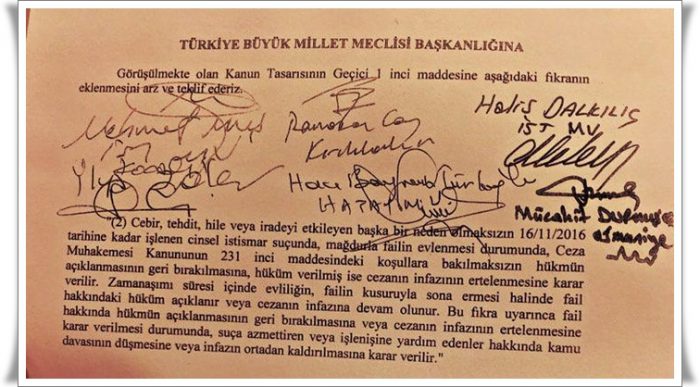 TÜRKİYE BÜYÜK MİLLET MECLİSİ BAŞKANLIĞINA
Görüşülmekte olan Kanun Tasarısının Geçici 1 inci maddesine aşağıdaki fıkranın
eklenmesini arz ve teklif ederiz.
Mehmet
Ramazan Can
Kırıkkale
Halis DALKILIÇ
İST MV
HATAY
Mücahit
Osmaniye
MV
"(2) Cebir, tehdit, hile veya iradeyi etkileyen başka bir neden olmaksızın 16/11/2016
tarihine kadar işlenen cinsel istismar suçunda, mağdurla failin evlenmesi durumunda, Ceza
Muhakemesi Kanununun 231 inci maddesindeki koşullara bakılmaksızın hükmün
açıklanmasının geri bırakılmasına, hüküm verilmiş ise cezanın infazının ertelenmesine karar
verilir. Zamanaşımı süresi içinde evliliğin, failin kusuruyla sona ermesi halinde fail
hakkındaki hüküm açıklanır veya cezanın infazına devam olunur. Bu fıkra uyarınca fail
hakkında hükmün açıklanmasının geri bırakılmasına veya cezanın infazının ertelenmesine
karar verilmesi durumunda, suça azmettiren veya işlenişine yardım edenler hakkında kamu
davasının düşmesine veya infazın ortadan kaldırılmasına karar verilir."